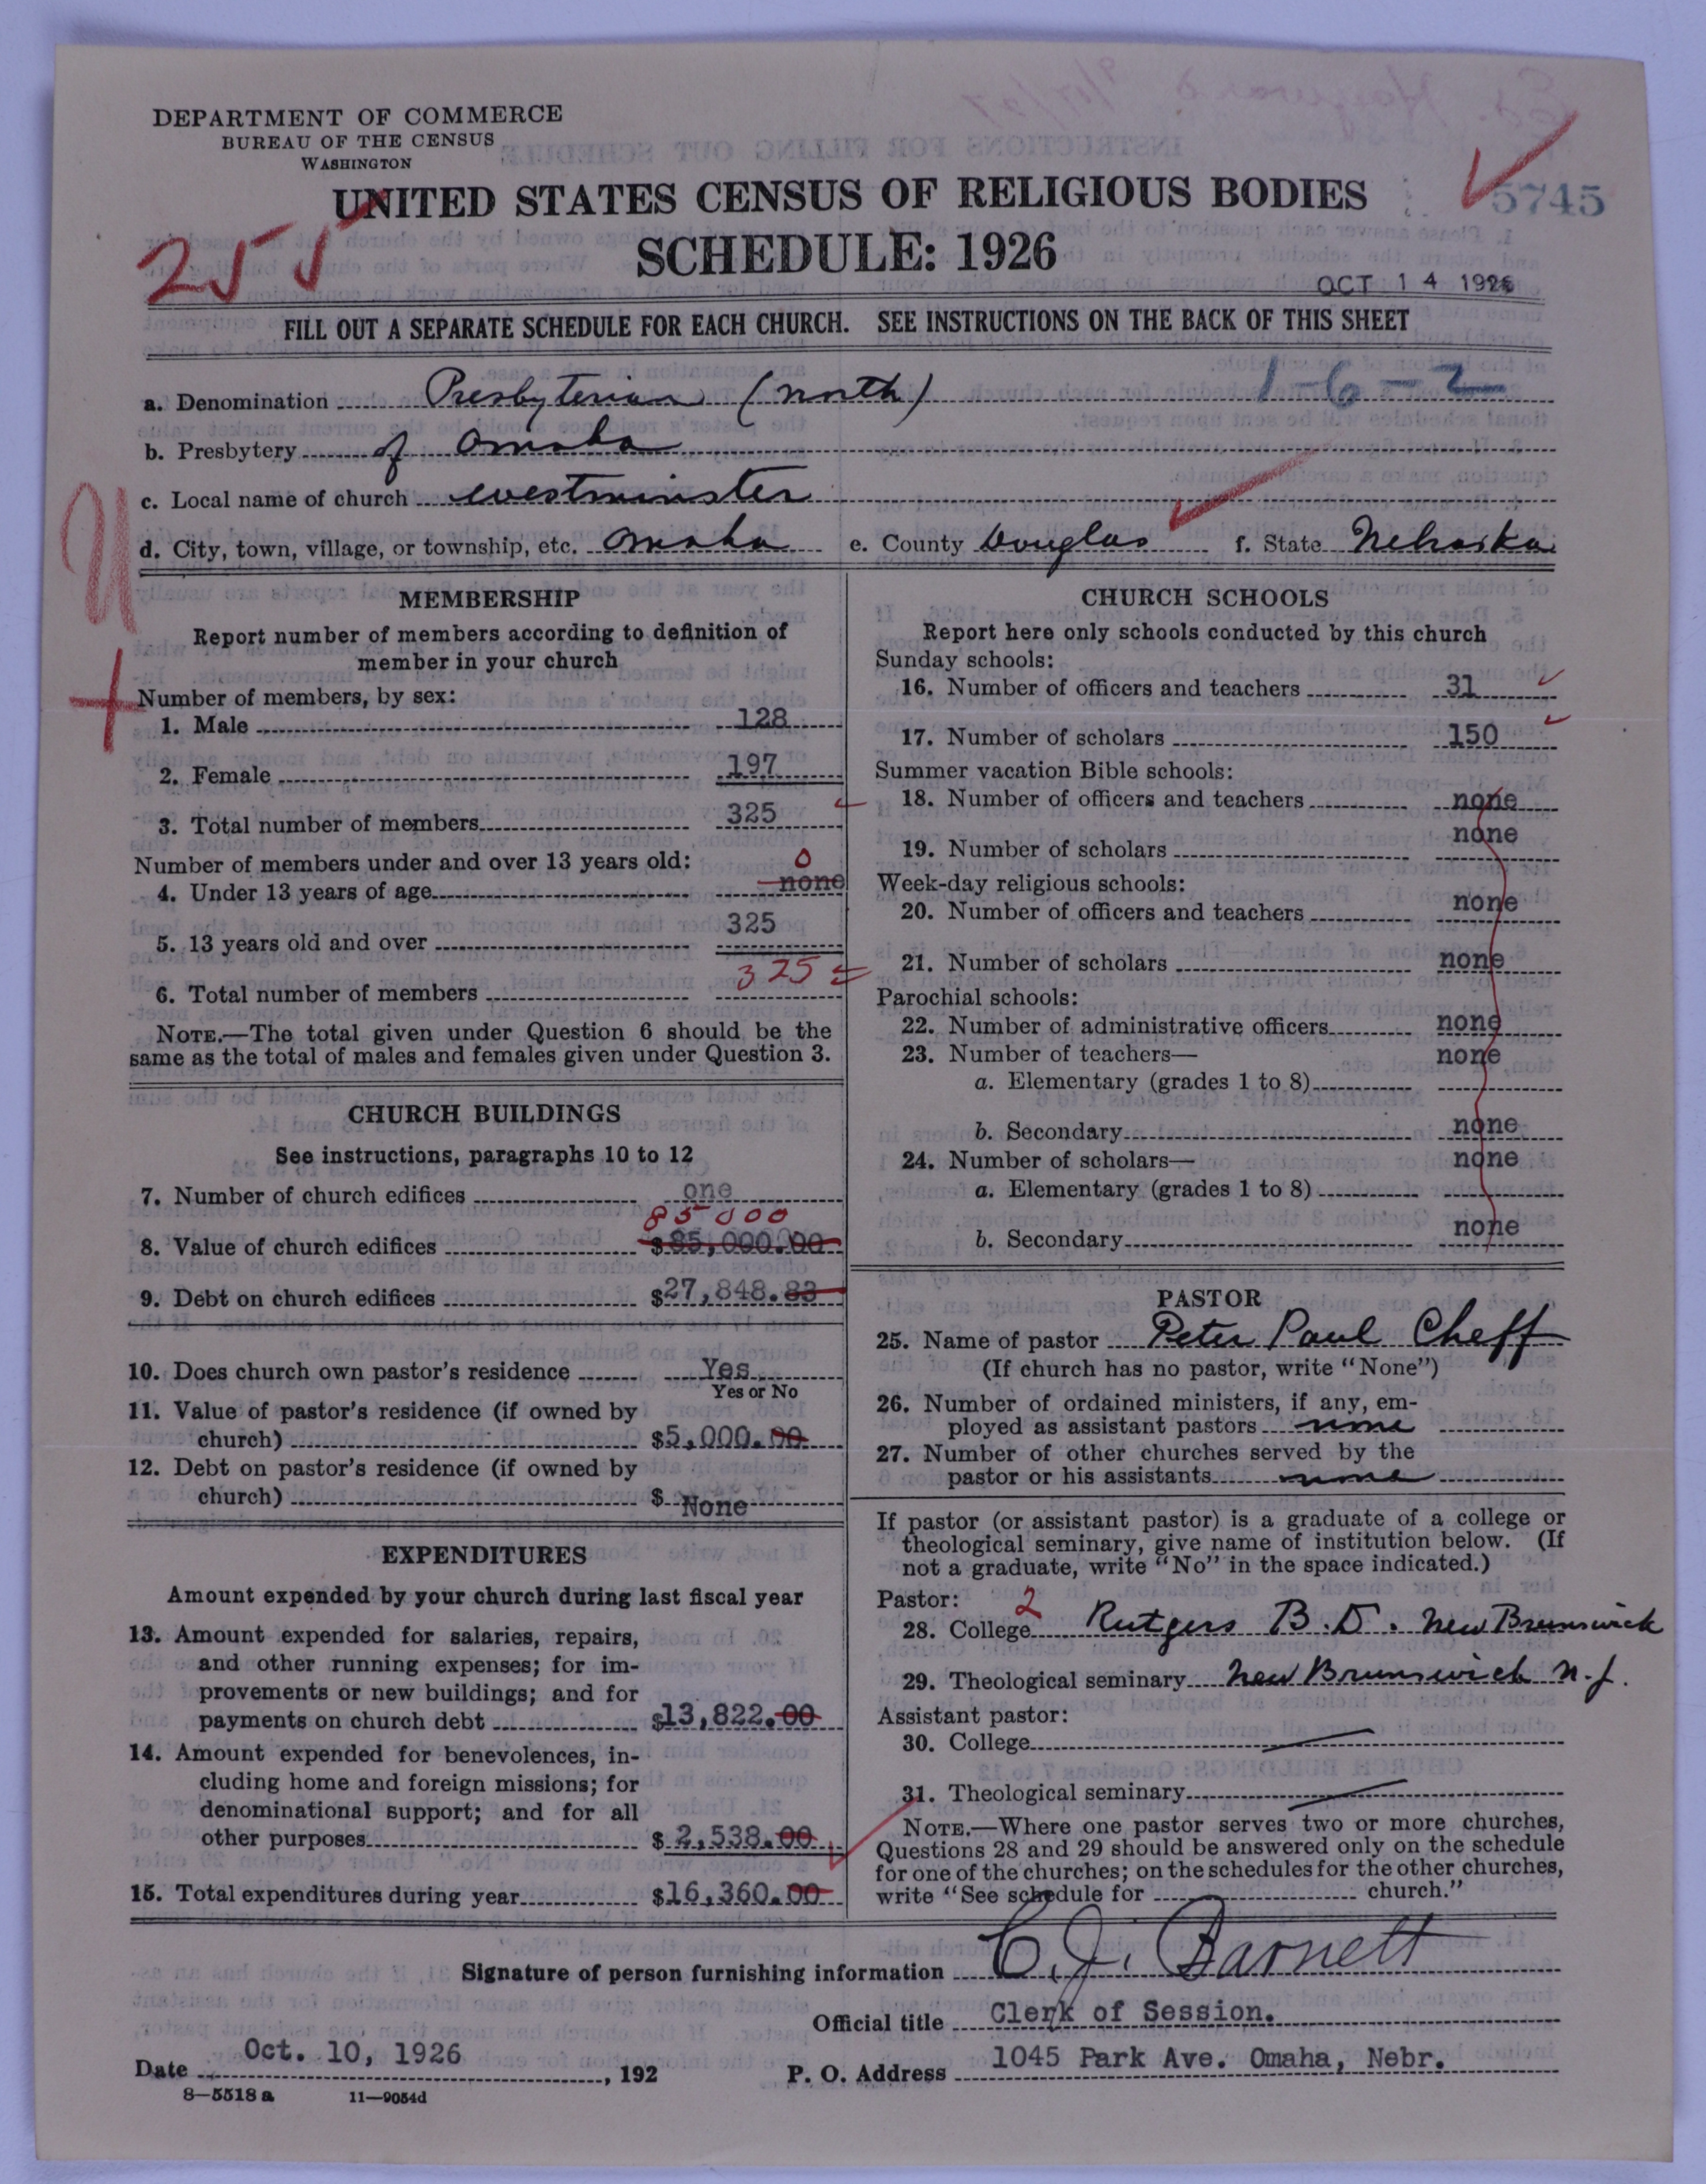 DEPARTMENT OF COMMERCE
BUREAU OF THE CENSUS
WASHINGTON
UNITED STATES CENSUS OF RELIGIOUS BODIES
5745
SCHEDULE: 1926
255
OCT 14 1926
FILL OUT A SEPARATE SCHEDULE FOR EACH CHURCH. SEE INSTRUCTIONS ON THE BACK OF THIS SHEET
1-6-2
a. Denomination Presbyterian (north)
b. Presbytery of Omaha
c. Local name of church Westminster
d. City, town, village, or township, etc. Omaha e. County Douglas f. State Nebraska
MEMBERSHIP
Report number of members according to definition of
member in your church
Number of members, by sex:
1. Male 128
2. Female 197
3. Total number of members 325
Number of members under and over 13 years old:
0
4. Under 13 years of age none
5. 13 years old and over 325
6. Total number of members 325
NOTE.—The total given under Question 6 should be the
same as the total of males and females given under Question 3.
CHURCH BUILDINGS
See instructions, paragraphs 10 to 12
7. Number of church edifices one
85000
8. Value of church edifices $85,000.00
9. Debt on church edifices $27,848.83
10. Does church own pastor's residence Yes
Yes or No
11. Value of pastor's residence (if owned by
church) $5,000.00
12. Debt on pastor's residence (if owned by
church) $ None
EXPENDITURES
Amount expended by your church during last fiscal year
13. Amount expended for salaries, repairs,
and other running expenses; for im-
provements or new buildings; and for
payments on church debt $13,822.00
14. Amount expended for benevolences, in-
cluding home and foreign missions; for
denominational support; and for all
other purposes $2,538.00
15. Total expenditures during year $16,360.00
CHURCH SCHOOLS
Report here only schools conducted by this church
Sunday schools:
16. Number of officers and teachers 31
17. Number of scholars 150
Summer vacation Bible schools:
18. Number of officers and teachers none
19. Number of scholars none
Week-day religious schools:
20. Number of officers and teachers none
21. Number of scholars none
Parochial schools:
22. Number of administrative officers none
23. Number of teachers—
a. Elementary (grades 1 to 8) none
b. Secondary none
24. Number of scholars—
a. Elementary (grades 1 to 8) none
b. Secondary none
PASTOR
25. Name of pastor Peter Paul Cheff
(If church has no pastor, write "None")
26. Number of ordained ministers, if any, em-
ployed as assistant pastors none
27. Number of other churches served by the
pastor or his assistants none
If pastor (or assistant pastor) is a graduate of a college or
theological seminary, give name of institution below. (If
not a graduate, write "No" in the space indicated.)
Pastor: 2
28. College Rutgers B.D. New Brunswick
29. Theological seminary New Brunswick N.J.
Assistant pastor:
30. College
31. Theological seminary
NOTE.—Where one pastor serves two or more churches,
Questions 28 and 29 should be answered only on the schedule
for one of the churches; on the schedules for the other churches,
write "See schedule for church."
Signature of person furnishing information C. J. Barnett
Official title Clerk of Session.
Date Oct. 10, 1926, 192
P. O. Address 1045 Park Ave. Omaha, Nebr.
8—5518a 11—9054d